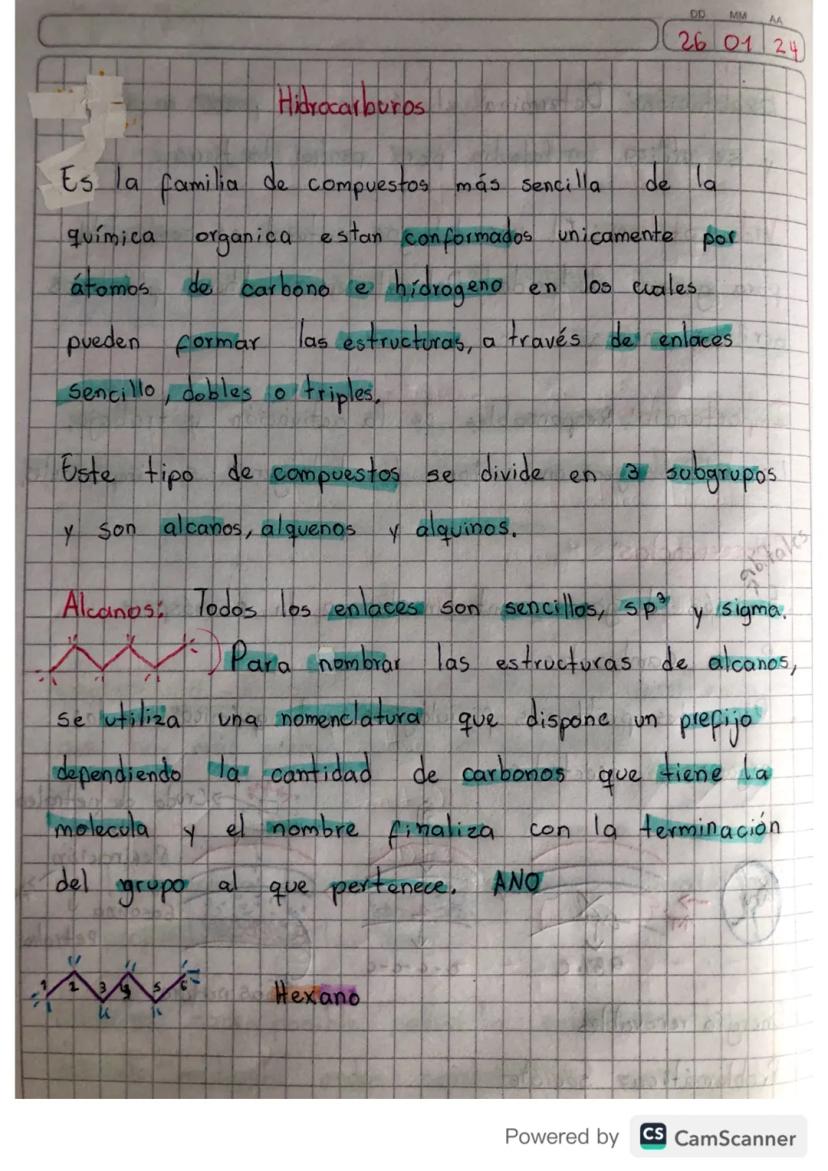 DD MM AA
26 01 24
Hidrocarburos
Es la familia de compuestos más sencilla de la
química organica estan conformados unicamente por
átomos de carbono e hidrogeno en los cuales
pueden formar las estructuras, a través de enlaces
sencillo, dobles o triples.
Este tipo de compuestos se divide en 3 subgrupos
y son alcanos, alquenos y alquinos.
Alcanos: Todos los enlaces son sencillos, sp³ y sigma.
Para nombrar las estructuras de alcanos,
se utiliza una nomenclatura que dispone un prefijo
dependiendo la cantidad de carbonos que tiene la
molecula y el nombre finaliza con la terminación
del grupo al que pertenece. ANO
1 2 3 4 5 6 Hexano
Powered by CS CamScanner